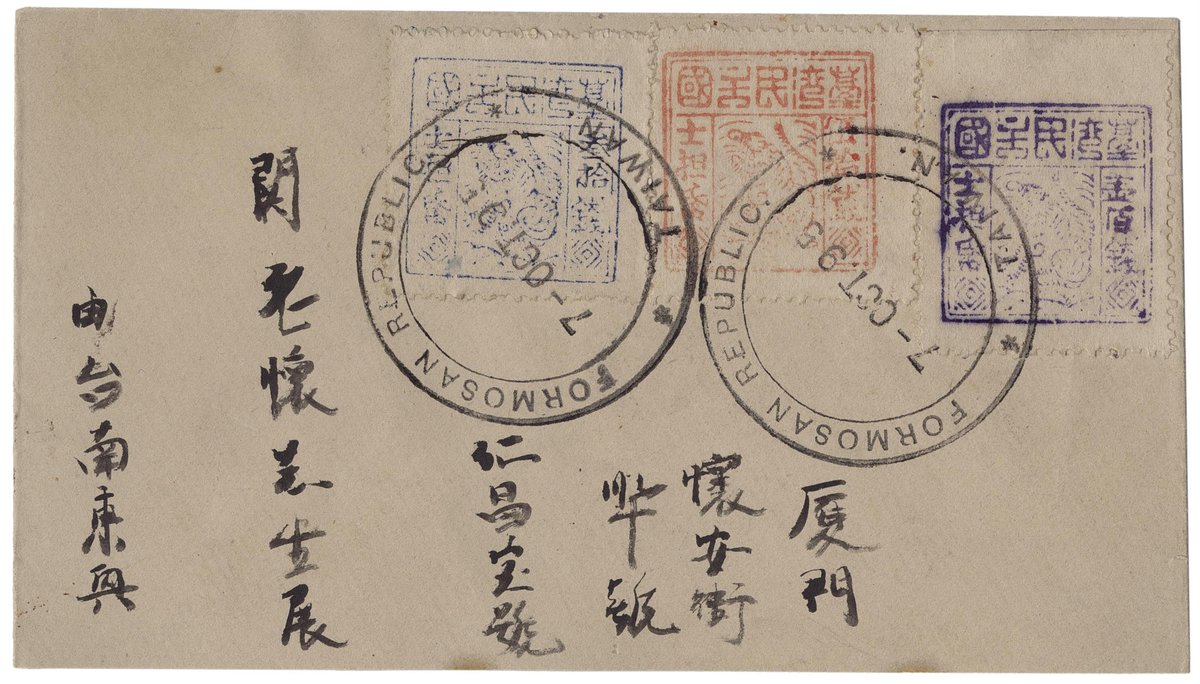 臺湾民主國
拾錢
臺湾民主國
士担帋
臺湾民主國
壹百錢
FORMOSAN REPUBLIC.
TAIWAN
7-OCT 95
FORMOSAN REPUBLIC.
TAIWAN.
7-OCT.95
厦門
懷安街
號
仁昌宝號
懷
由台南東興